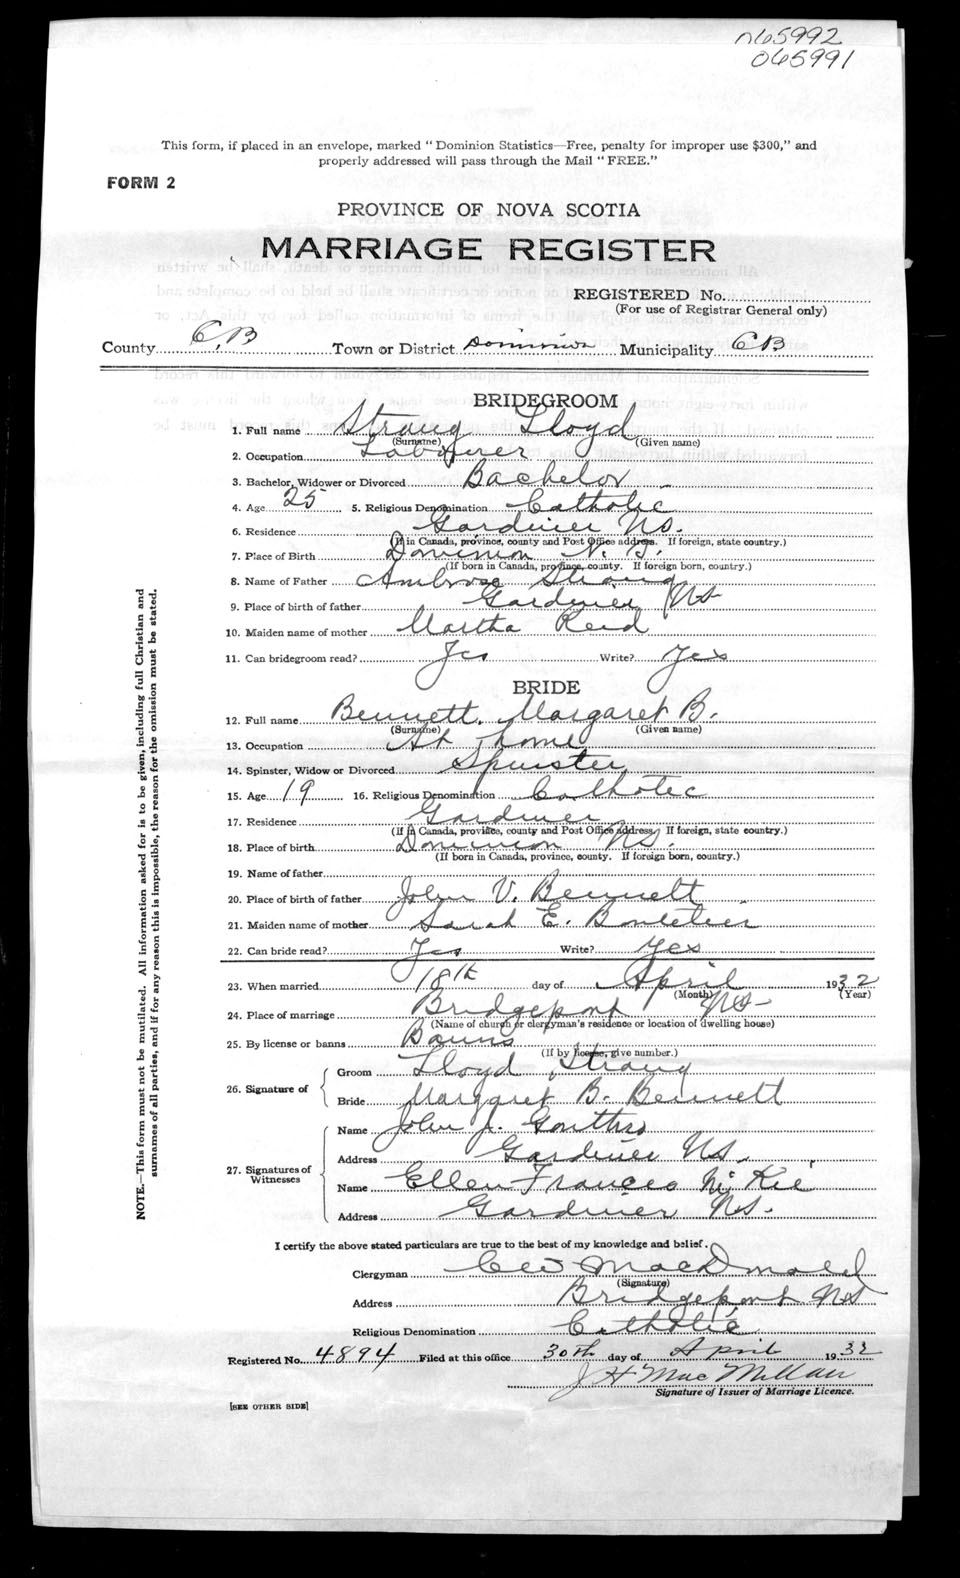 065992
065991
This form, if placed in an envelope, marked "Dominion Statistics—Free, penalty for improper use $300," and
properly addressed will pass through the Mail "FREE."
FORM 2
PROVINCE OF NOVA SCOTIA
MARRIAGE REGISTER
REGISTERED No.
(For use of Registrar General only)
County C.B Town or District Dominion Municipality CB
BRIDEGROOM
1. Full name Strang Lloyd
(Surname) (Given name)
2. Occupation Labourer
3. Bachelor, Widower or Divorced Bachelor
4. Age 25 5. Religious Denomination Catholic
6. Residence Gardiner NS.
(If in Canada, province, county and Post Office address. If foreign, state country.)
7. Place of Birth Dominion N.S.
(If born in Canada, province, county. If foreign born, country.)
8. Name of Father Ambrose Strang
9. Place of birth of father Gardiner NS
10. Maiden name of mother Martha Reid
11. Can bridegroom read? Yes Write? Yes
BRIDE
12. Full name Bennett, Margaret B.
(Surname) (Given name)
13. Occupation At home
14. Spinster, Widow or Divorced Spinster
15. Age 19 16. Religious Denomination Catholic
17. Residence Gardiner
(If in Canada, province, county and Post Office address. If foreign, state country.)
18. Place of birth Dominion NS.
(If born in Canada, province, county. If foreign born, country.)
19. Name of father
20. Place of birth of father John V. Bennett
21. Maiden name of mother Sarah E.
22. Can bride read? Yes Write? Yes
23. When married 18th day of April 1932
(Month) (Year)
24. Place of marriage Bridgeport NS
(Name of church or clergyman's residence or location of dwelling house)
25. By license or banns Banns
(If by license, give number.)
26. Signature of
Groom Lloyd Strang
Bride Margaret B. Bennett
27. Signatures of Witnesses
Name John J. Gouthro
Address Gardiner NS.
Name Ellen Frances Mc Kie
Address Gardiner NS.
I certify the above stated particulars are true to the best of my knowledge and belief.
Clergyman MacDonald
(Signature)
Address Bridgeport NS
Religious Denomination Catholic
Registered No. 4894 Filed at this office 30th day of April 1932
J H MacMillan
Signature of Issuer of Marriage Licence.
[SEE OTHER SIDE]
NOTE.—This form must not be mutilated. All information asked for is to be given, including full Christian and
surnames of all parties, and if for any reason this is impossible, the reason for the omission must be stated.